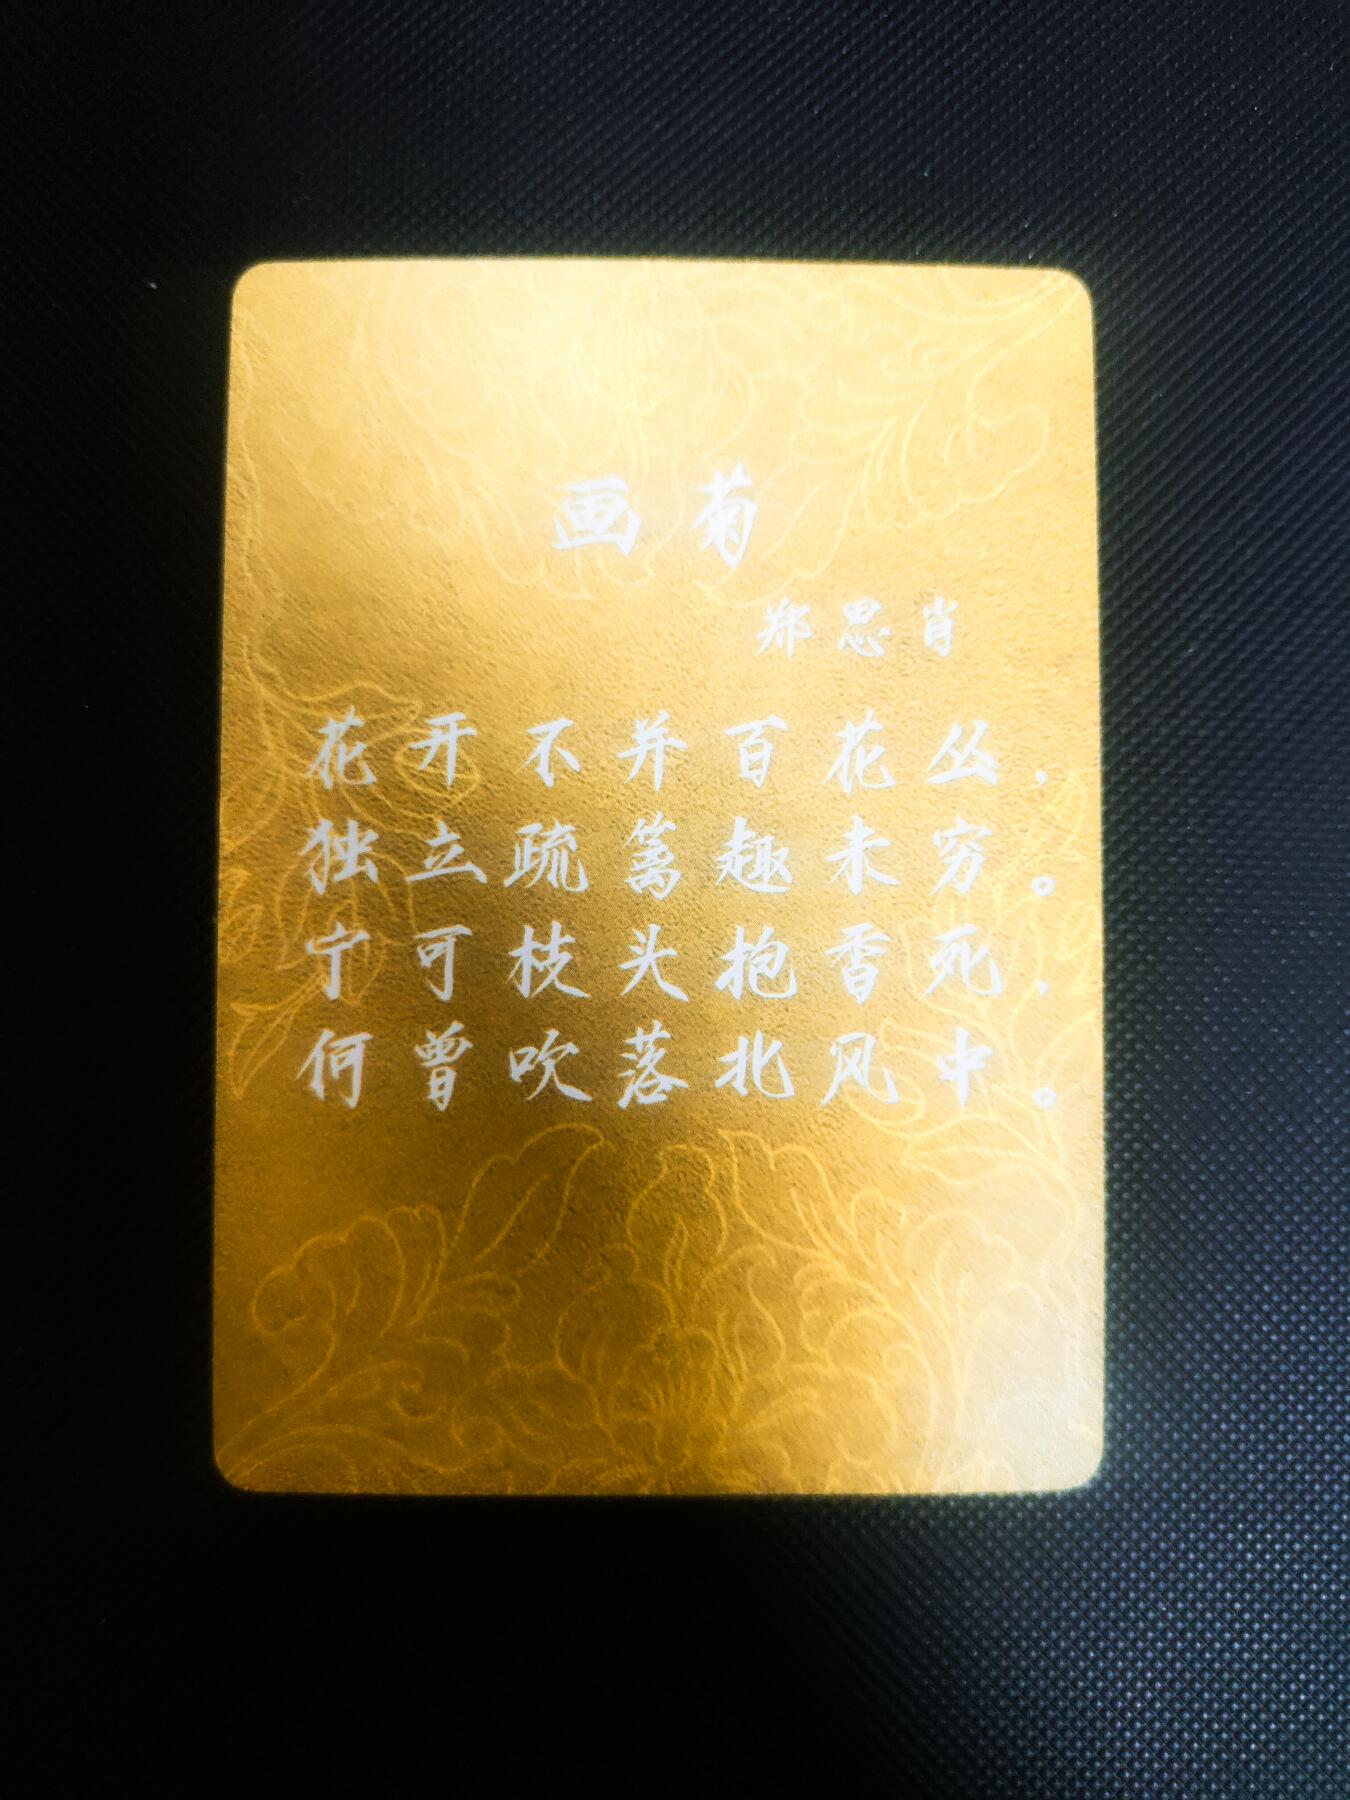 画菊
郑思肖
花开不并百花丛，
独立疏篱趣未穷。
宁可枝头抱香死，
何曾吹落北风中。